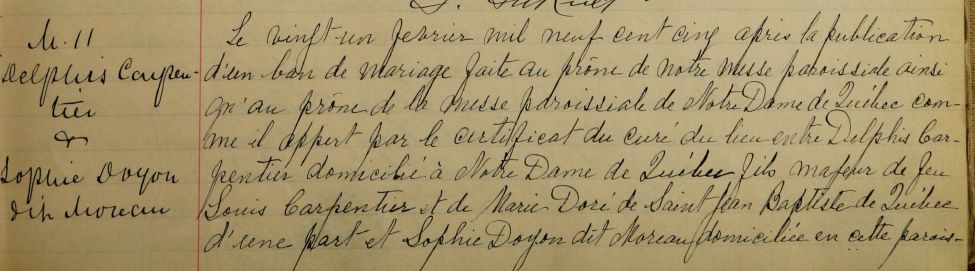 M. 11
Delphis Carpen-
tier
&
Sophie Doyon
dit Moreau
Le vingt-un février mil neuf cent cinq après la publication
d'un ban de mariage faite au prône de notre messe paroissiale ainsi
qu'au prône de la messe paroissiale de Notre Dame de Québec com-
me il appert par le certificat du curé du lieu entre Delphis Car-
pentier domicilié à Notre Dame de Québec fils majeur de feu
Louis Carpentier et de Marie Doré de Saint Jean Baptiste de Québec
d'une part et Sophie Doyon dit Moreau domiciliée en cette parois-